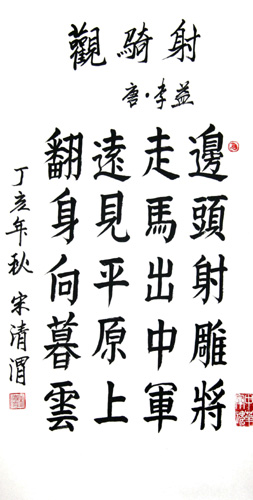 觀騎射
唐·李益
邊頭射雕將
走馬出中軍
遠見平原上
翻身向暮雲
丁亥年秋 宋清渭